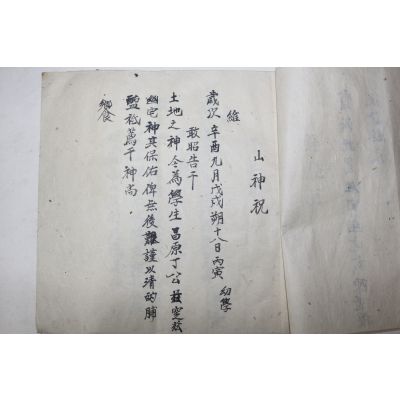 山神祝
維
歲次 辛酉九月戊戌朔十八日丙寅 幼學
敢昭告于
土地之神今為學生昌原丁公玆窆玆
幽宅神其保佑俾無後艱謹以清酌脯
醢祗薦于神尚
饗